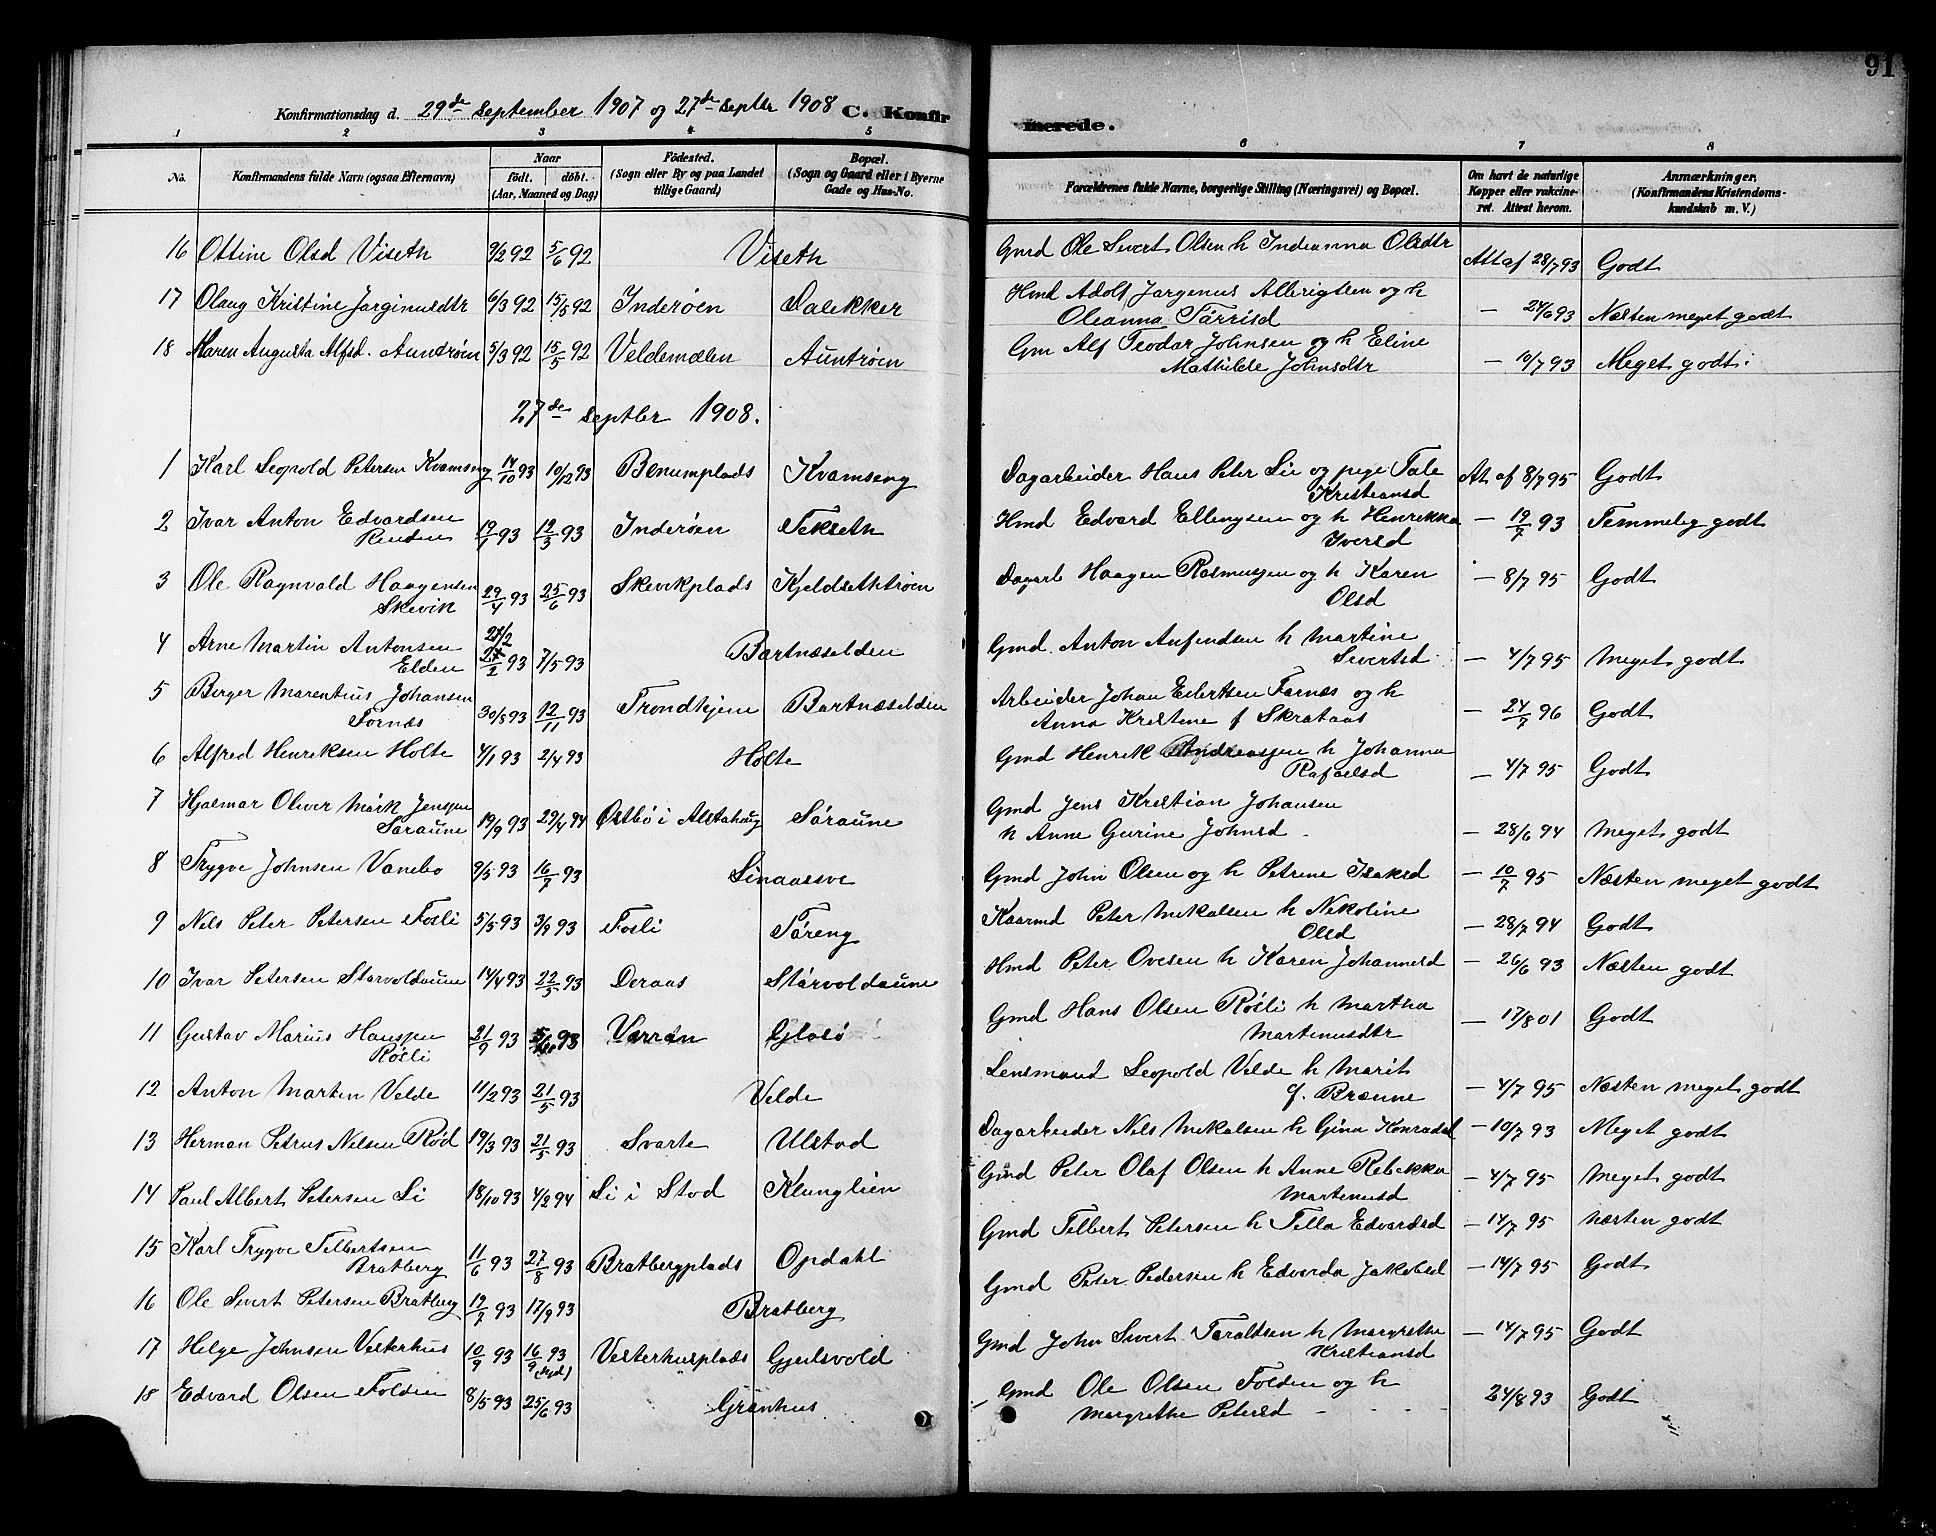 91
Konfirmationsdag d. 29de september 1907 og 27de septbr 1908 C. Konfirmerede.
1 2 3 4 5 6 7 8
No. Konfirmandens fulde Navn (ogsaa Efternavn) Naar födt. döbt. (Aar, Maaned og Dag) Födested. (Sogn eller By og paa Landet tillige Gaard) Bopæl. (Sogn og Gaard eller i Byerne Gade og Hus-No. Forældrenes fulde Navne, borgerlige Stilling (Næringsvei) og Bopæl. Om havt de naturlige Kopper eller vakcineret. Attest herom. Anmærkninger. (Konfirmandens Kristendomskundskab m. V.)
16 Ottine Olsd Viseth 9/2 92 5/6 92 Viseth Gmd Ole Sivert Olsen h Indianna Olsdtr Att af 28/7 93 Godt
17 Olaug Kristine Jørginusdtr 6/3 92 15/5 92 Inderøen Dalekker Hmd Adolf Jørgenus Albrigtsen og h
Oleanna Tørrisd — 24/6 93 Næsten meget godt
18 Maren Augusta Alfsd. Auntrøen 5/3 92 15/5 92 Veldemælen Auntrøen Gm Alf Teodor Johnsen og h Eline
Mathilde Johnsdtr — 10/7 93 Meget godt.
27de septbr 1908.
1 Karl Leopold Petersen Kvamseng 14/10 93 10/12 93 Benumplads Kvamseng Dagarbeider Hans Peter Lie og pige Tale
Kristiansd At af 8/7 95 Godt
2 Ivar Anton Edvardsen
Renden 19/1 93 12/3 93 Inderøen Tekseth Hmd Edvard Ellingsen og h Henrikka
Iversd — 19/7 93 Temmelig godt
3 Ole Ragnvald Haagensen
Skevik 29/4 93 25/6 93 Skevikplads Kjeldsethtrøen Dagarb Haagen Rasmussen og h Karen
Olsd — 8/7 95 Godt
4 Arne Martin Antonsen
Elden 24/2 93 7/5 93 Bartnæselden Gmd. Anton Anfindsen h Martine
Sivertsd — 4/7 95 Meget godt
5 Birger Marentius Johansen
Fornæs 30/8 93 12/11 93 Trondhjem Bartnæselden Arbeider Johan Eilertsen Fornæs og h
Anna Kristine f Skrataas — 24/7 96 Godt
6 Alfred Henriksen Holte 4/1 93 2/4 93 Holte Gmd Henrik Andreassen h Johanna
Rafaelsd — 4/7 95 Godt
7 Hjalmar Oliver Mørk Jenssen
Søraune 19/9 93 29/4 94 Østbø i Alstahaug Søraune Gmd Jens Kristian Johansen
h Anne Gurine Johnsd — 28/6 94 Meget godt
8 Trygve Johnsen Vanebo 9/5 93 16/7 93 Gmd John Olsen og h Petrine Isaksd — 10/7 95 Næsten meget godt
9 Nils Peter Petersen Fosli 5/5 93 3/9 93 Fosli Føreng Kaarmd Peter Mikalsen h Nikoline
Olsd — 28/7 94 Godt
10 Ivar Petersen Størvoldaune 14/4 93 22/5 93 Deraas Størvoldaune Hmd Peter Ovesen h Karen Johannesd — 26/6 93 Næsten godt
11 Gustav Marius Hanssen
Røsli 21/9 93 93 Verran Gløsø Gmd Hans Olsen Røsli h Martha
Martinusdtr — 17/8 01 Godt
12 Anton Martin Velde 11/2 93 21/5 93 Velde Lensmand Leopold Velde h Marit
f. Brænne — 4/7 95 Næsten meget godt
13 Herman Petrus Nilsen Rød 19/3 93 21/5 93 Svarte Ulstad Dagarbeider Nils Mikalsen h Gina Konradsd — 10/7 93 Meget godt
14 Paul Albert Petersen Li 18/10 93 4/2 94 Li i Stod Klunglien Gmd Peter Olaf Olsen h Anne Rebekka
Martinusd — 4/7 95 Meget godt
15 Karl Trygve Tilbertsen
Bratberg 11/6 93 27/8 93 Bratbergplads Opdahl Gmd Tilbert Petersen h Tilla Edvardsd — 14/7 95 Næsten godt
16 Ole Sivert Petersen Bratberg 19/7 93 17/9 93 Bratberg Gmd Peter Pedersen h Edvarda Jakobsd — 14/7 95 Godt
17 Helge Johnsen Vesterhus 10/9 93 16/9 93 Vesterhusplads Gjeilsvold Gmd John Sivert Toraldsen h Margrethe
Kristiansd — 14/7 95 Godt
18 Edvard Olsen Folden 8/5 93 25/6 93 Grønhus Gmd Ole Olsen Folden og h
Margrethe Petersd 24/8 93 Godt